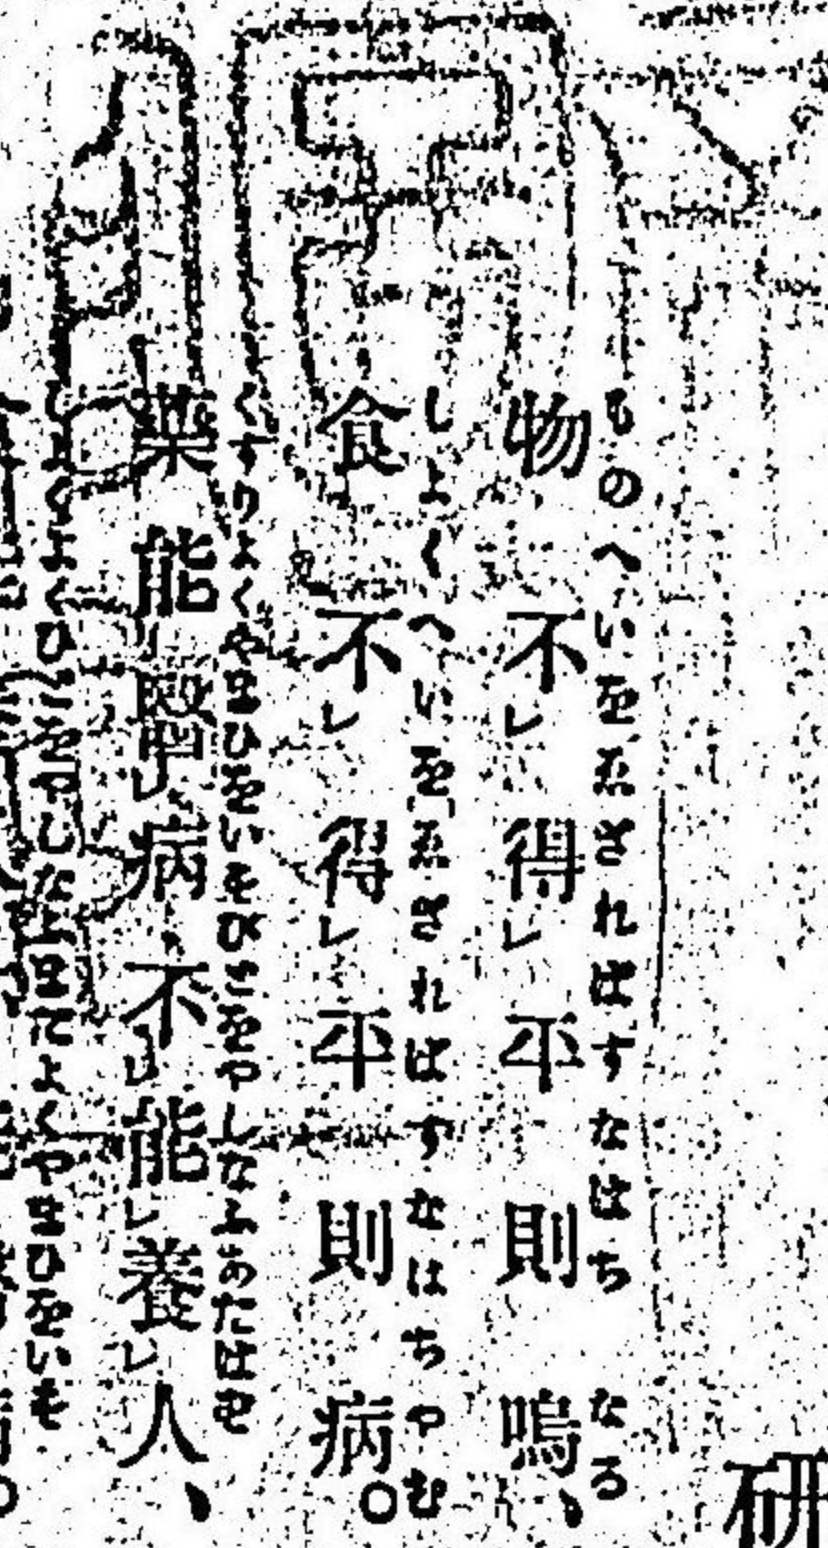 研
ものへいをゑざればすなはちなる
物不レ得レ平則嗚、
しよくへいをゑざればすなはちやむ
食不レ得レ平則病。
くすりよくやまひをい ひとをやしなふあたは
薬能レ醫レ病不レ能レ養レ人、
しよくよくひとをやしなふまたよくやまひをい